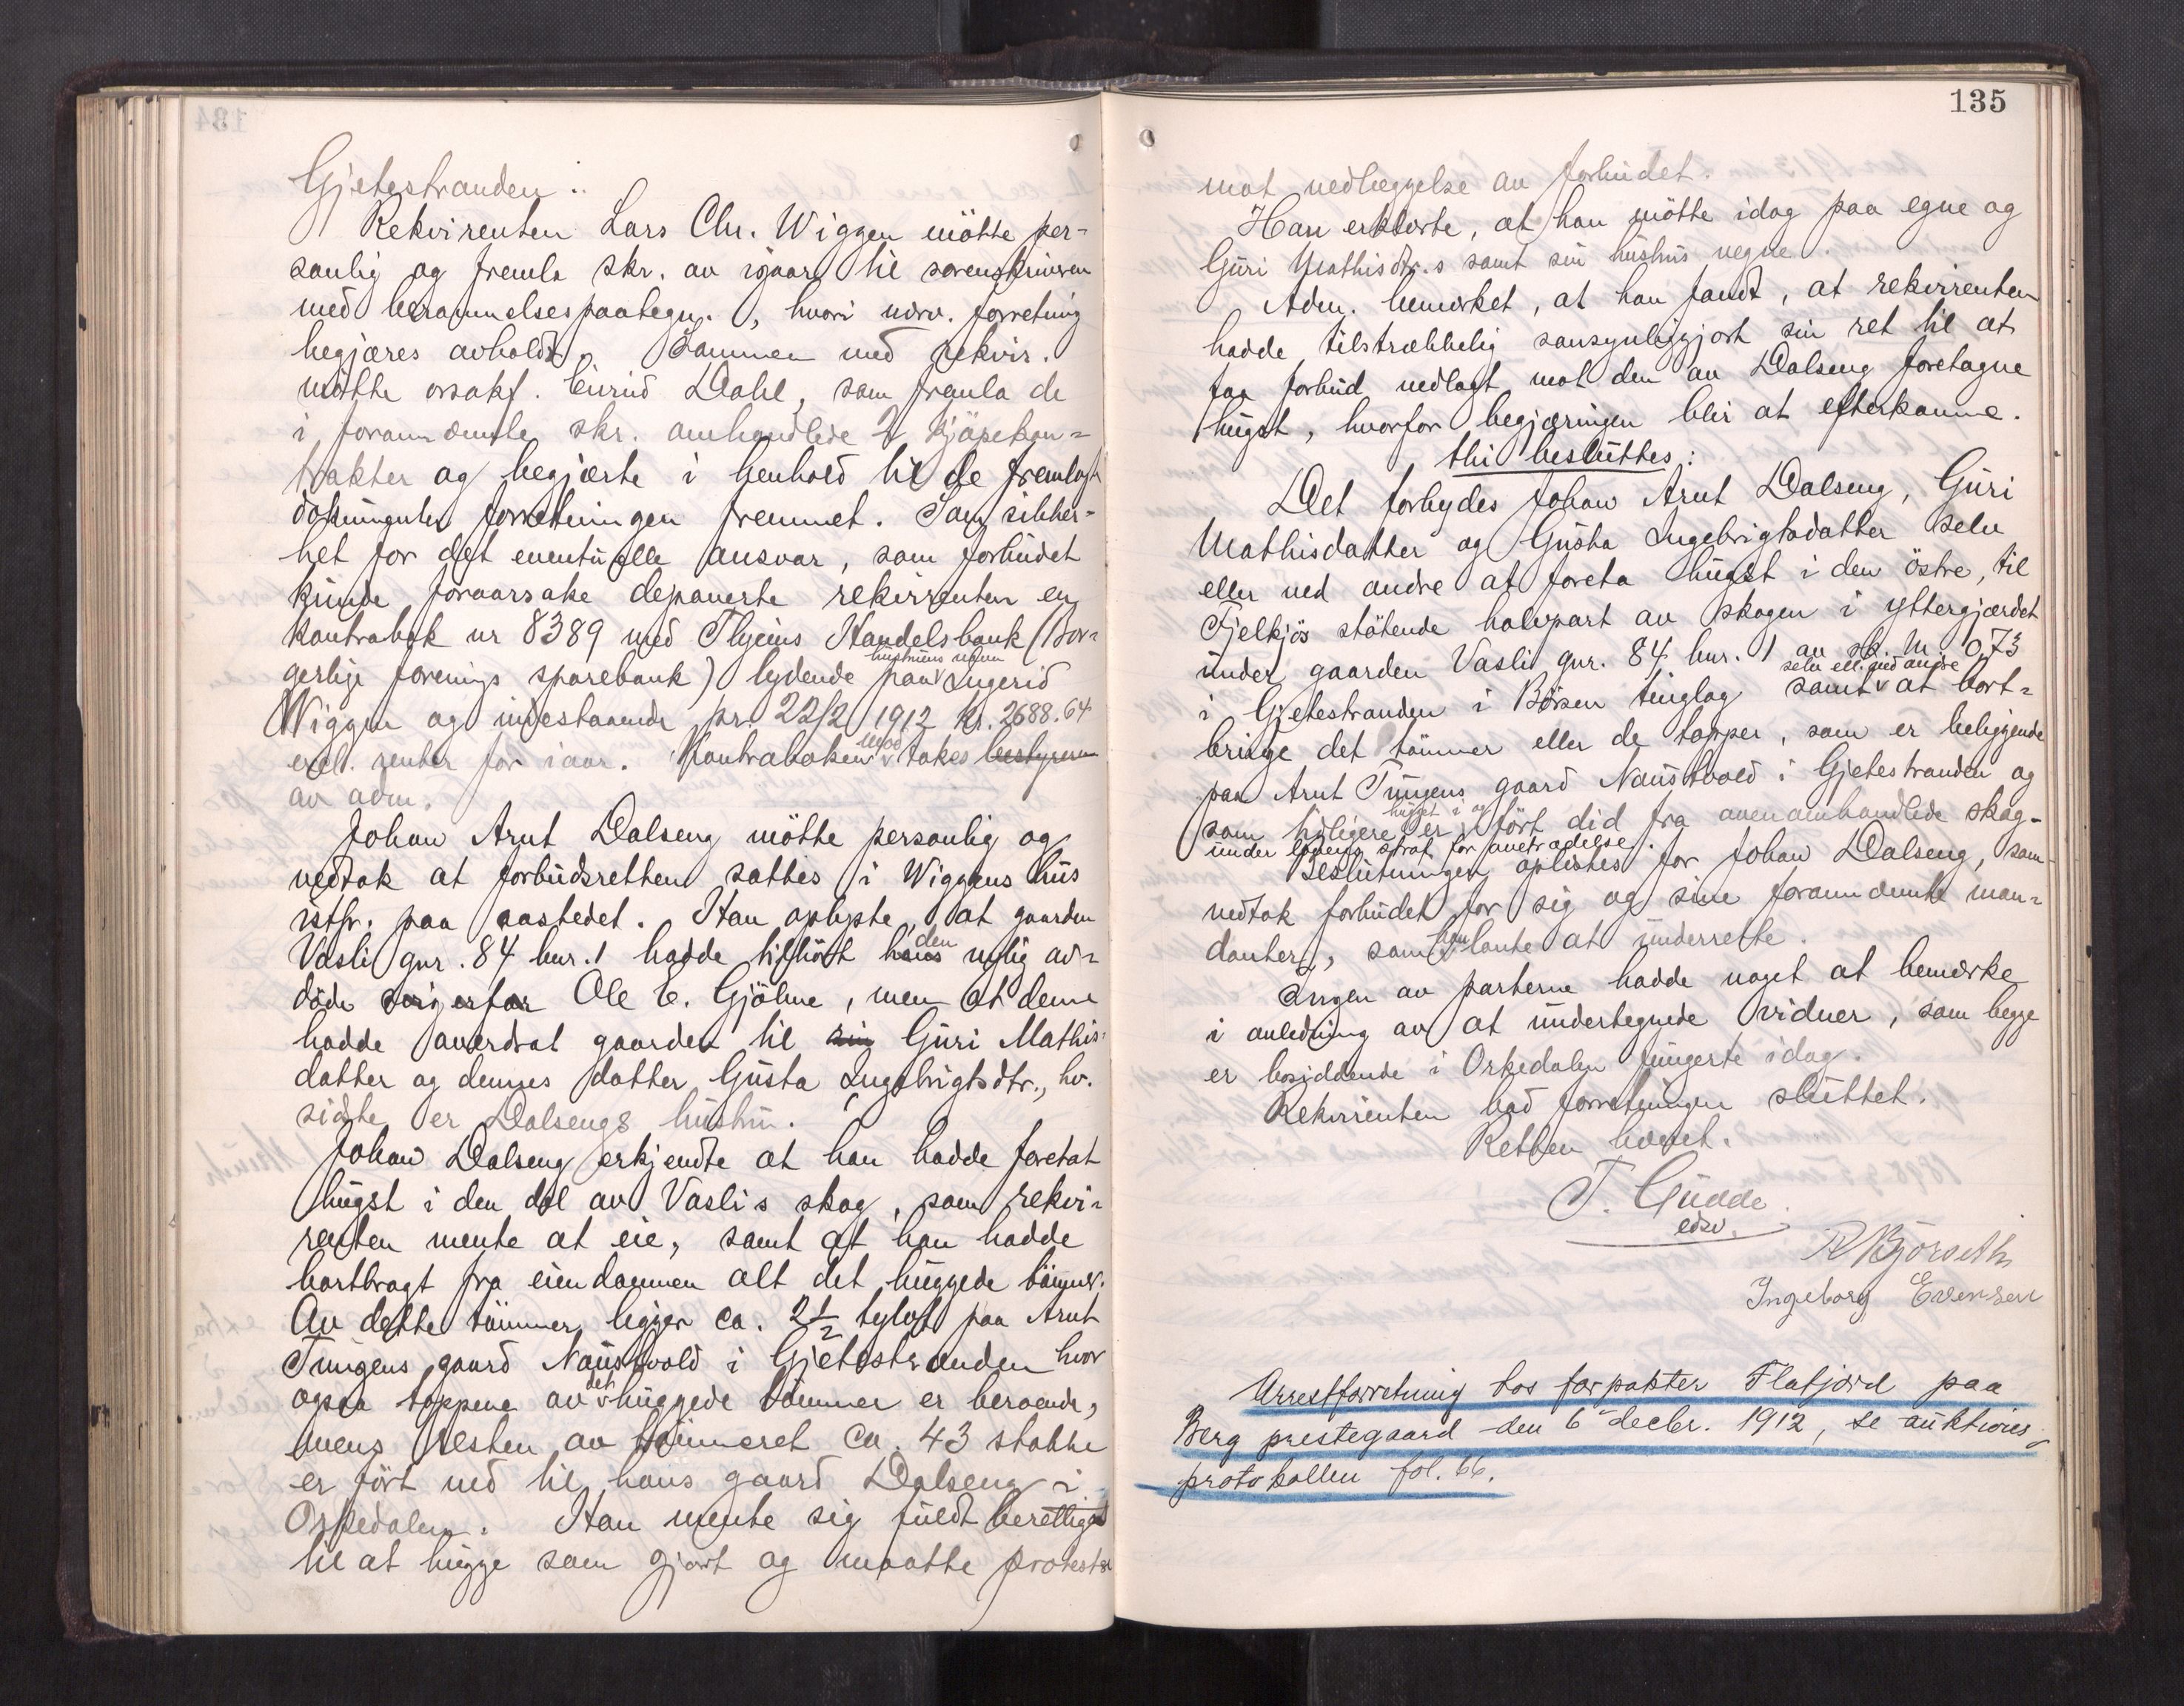 Gjetestranden:
Rekvirenten Lars Chr. Wiggen mötte per-
sonlig og fremla skr. av igaar til sorenskriveren
med berammelsespaategn., hvori nærv. forretning
begjæres avholdt. Sammen med rekvir.
mötte orsakf. Eirind Dahl, som fremla de
i forannævnte skr. omhandlede 2 kjöpekon-
trakter og begjærte i henhold til de fremlagte
dokumenter forretningen fremmet. Som sikker-
het for det eventuelle ansvar, som forbudet
kunde foraarsake deponerte rekvirenten en
kontrabok nr 8389 med Thjems Handelsbank (Bor-
gerlige forenings sparebank) lydende paa hustruens navn Ingerid
Wiggen og indestaaende pr. 22/2 1912 kr. 2688.64
excl. renter for iaar. Kontraboken mod takes bestyreren
av adm.
Johan Arnt Dalseng mötte personlig og
vedtok at forbudsretten sattes i Wiggens hus
istfr. paa aastedet. Han oplyste, at gaarden
Vasli gnr. 84 bnr. 1 hadde tilhört hans den nylig av-
döde svigerfar Ole E. Gjölme, men at denne
hadde overdrat gaarden til sin Guri Mathis-
datter og dennes datter Gusta Ingebrigtsdtr., hv.
sidste er Dalsengs hustru.
Johan Dalseng erkjendte at han hadde foretat
hugst i den del av Vaslis skog, som rekvi-
renten mente at eie, samt at han hadde
bortbragt fra eiendommen alt det huggede tömmer.
Av dette tömmer ligger ca. 2 1/2 tylvt paa Arnt
Tungens gaard Naustvold i Gjetestranden hvor
ogsaa toppene av det huggede tömmer er beroende,
mens resten av tömmeret ca. 43 stokke
er fört ned til hans gaard Dalseng i
Orkedalen. Han mente sig fuldt berettiget
til at hugge som gjort og maatte protestere
135
mot nedlæggelse av forbudet.
Han erklærte, at han mötte idag paa egne og
Guri Mathisdtr.s samt sin hustrus vegne.
Adm. bemerket, at han fandt, at rekvirenten
hadde tilstrækkelig sansynliggjort sin ret til at
faa forbud nedlagt mot den av Dalseng foretagne
hugst, hvorfor begjæringen blir at efterkomme.
thi besluttes:
Det forbydes Johan Arnt Dalseng, Guri
Mathisdatter og Gusta Ingebrigtsdatter selv
eller ved andre at foreta hugst i den östre, til
Fjelkjös stötende halvpart av skogen i yttergjærdet
under gaarden Vasli gnr. 84 bnr. 1 av sk. M. 0,73
i Gjetestranden i Börsen tinglag samt selv ell. ved andre at bort-
bringe det tömmer eller de topper, som er beliggende
paa Arnt Tungens gaard Naustvold i Gjetestranden og
som tidligere er hugget i og fört did fra ovenomhandlede skog-
under lovens straf for overtrædelse.
Beslutningen oplæstes for Johan Dalseng, som
vedtok forbudet for sig og sine forannævnte man-
danter, som han lovte at underrette.
Ingen av parterne hadde noget at bemerke
i anledning av at undertegnede vidner, som begge
er bosiddende i Orkedalen fungerte idag.
Rekvirenten bad forretningen sluttet.
Retten hævet.
T. Gudde
edsv.
R Björseth
Ingeborg Evensen
Arrestforretning hos forpakter Flatjord paa
Berg prestegaard den 6 decbr. 1912, se auktions-
protokollen fol. 66.